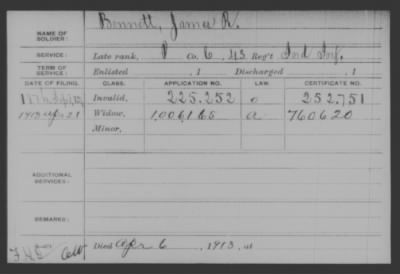 NAME OF SOLDIER: Bennett, James R.
SERVICE: Late rank, P Co. G, 43 Reg't Ind Inf.
TERM OF SERVICE: Enlisted , 1 Discharged , 1
DATE OF FILING. CLASS. APPLICATION NO. LAW. CERTIFICATE NO.
Invalid, 225.252 252.751
1913 Apr 21 Widow, 1,006,165 a 760620
Minor,
ADDITIONAL SERVICES:
REMARKS:
Died Apr 6, 1913, at